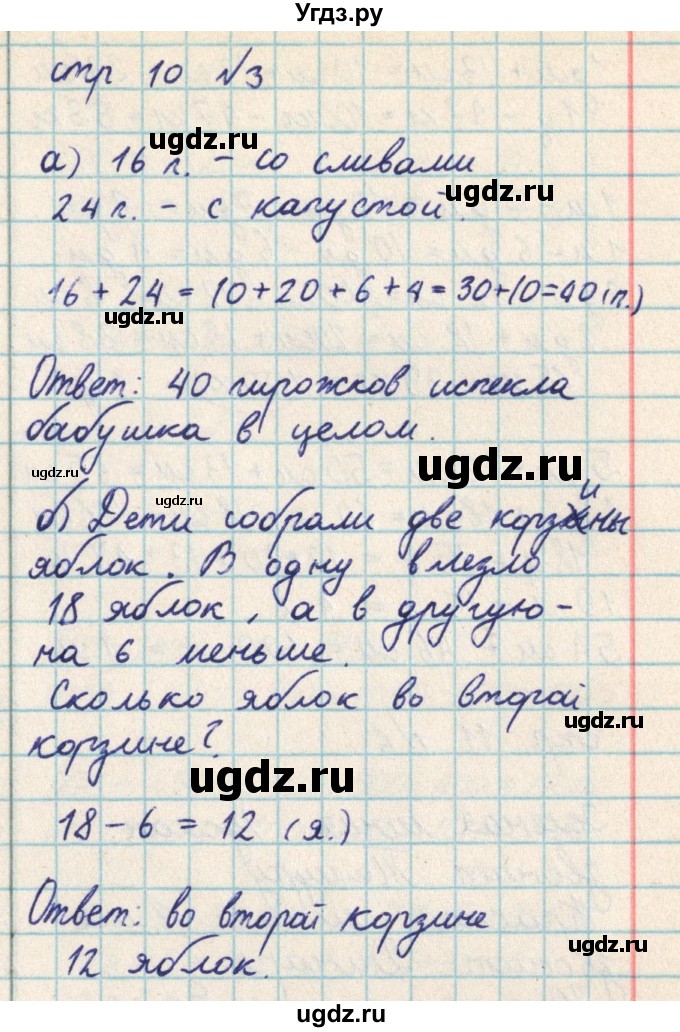 Угдз.ру
стр 10 №3
ugdz.ru
а) 16 п. - со сливами
ugdz.ru
24 п. - с капустой.
16 + 24 = 10+20+6+4=30+10=40(п.)
ugdz.ru
Ответ: 40 пирожков испекла
бабушка в целом.
ugdz.ru ugdz.ru
б) Дети собрали две корзины
яблок. В одну влезло
18 яблок, а в другую-
на 6 меньше.
Сколько яблок во второй
ugdz.ru
корзине?
ugdz.ru
18 - 6 = 12 (я.)
Ответ: во второй корзине
ugdz.ru
12 яблок.
ugdz.ru